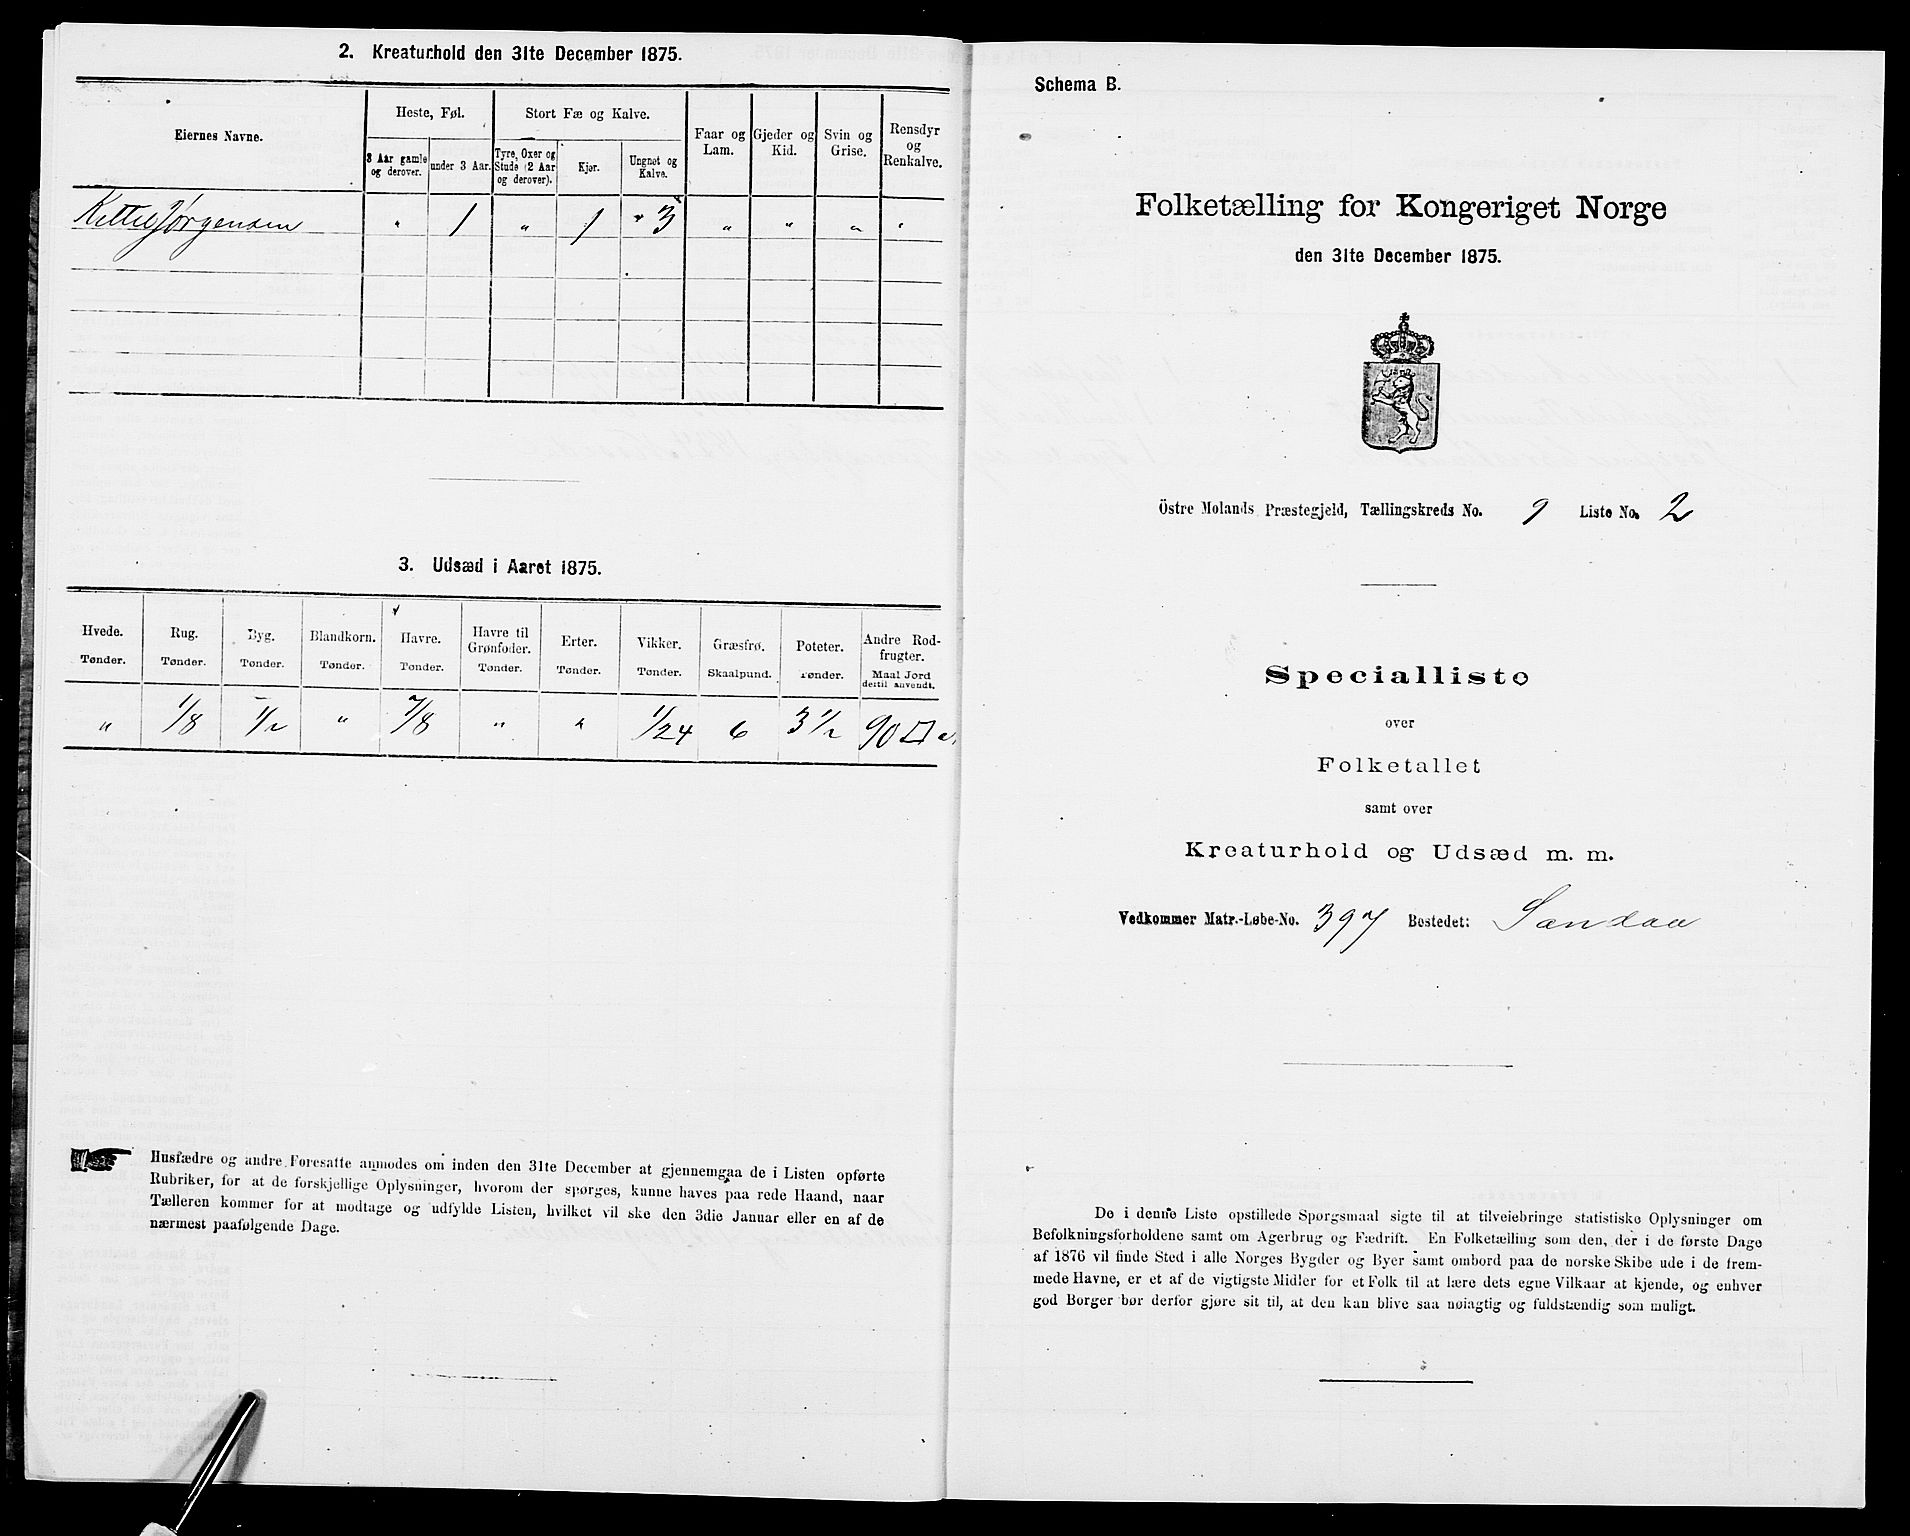 2. Kreaturhold den 31te December 1875.
Eiernes Navne.
Heste, Føl.
3 Aar gamle og derover.
under 3 Aar.
Stort Fæ og Kalve.
Tyre, Oxer og Stude (2 Aar og derover).
Kjør.
Ungnøt og Kalve.
Faar og Lam.
Gjeder og Kid.
Svin og Grise.
Rensdyr og Renkalve.
Kittel Jørgensen " 1 " 1 " 3 " " " "
3. Udsæd i Aaret 1875.
Hvede. Rug. Byg. Blandkorn. Havre. Havre til Grønfoder. Erter. Vikker. Græsfrø. Poteter. Andre Rodfrugter.
Tønder. Tønder. Tønder. Tønder. Tønder. Tønder. Tønder. Tønder. Skaalpund. Tønder. Maal Jord dertil anvendt.
" 1/8 1/2 " 7/8 " " 1/24 6 3 1/2 90 □ a.
Husfædre og andre Foresatte anmodes om inden den 31te December at gjennemgaa de i Listen opførte
Rubriker, for at de forskjellige Oplysninger, hvorom der spørges, kunne haves paa rede Haand, naar
Tælleren kommer for at modtage og udfylde Listen, hvilket vil ske den 3die Januar eller en af de
nærmest paafølgende Dage.
Schema B.
Folketælling for Kongeriget Norge
den 31te December 1875.
Östre Molands Præstegjeld, Tællingskreds No. 9 Liste No. 2
Specialliste
over
Folketallet
samt over
Kreaturhold og Udsæd m. m.
Vedkommer Matr.-Løbe-No. 397 Bostedet: Sandaa
De i denne Liste opstillede Spørgsmaal sigte til at tilveiebringe statistiske Oplysninger om
Befolkningsforholdene samt om Agerbrug og Fædrift. En Folketælling som den, der i de første Dage
af 1876 vil finde Sted i alle Norges Bygder og Byer samt ombord paa de norske Skibe ude i de frem-
mede Havne, er et af de vigtigste Midler for et Folk til at lære dets egne Vilkaar at kjende, og enhver
god Borger bør derfor gjøre sit til, at den kan blive saa nøiagtig og fuldstændig som muligt.